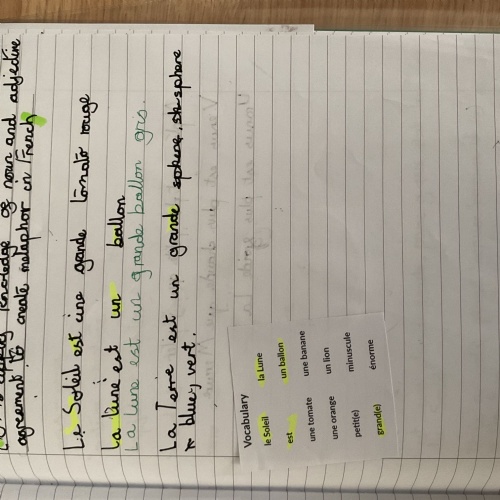 knowledge of noun and adjective
agreement to create metaphor in French
Le Soleil est une grande tomato rouge
La lune est un ballon
La lune est un grande ballon gris.
La Terre est un grande sphere,
blue, vert.
Vocabulary
le Soleil la Lune
est un ballon
une tomate une banane
une orange un lion
petit(e) minuscule
grand(e) énorme